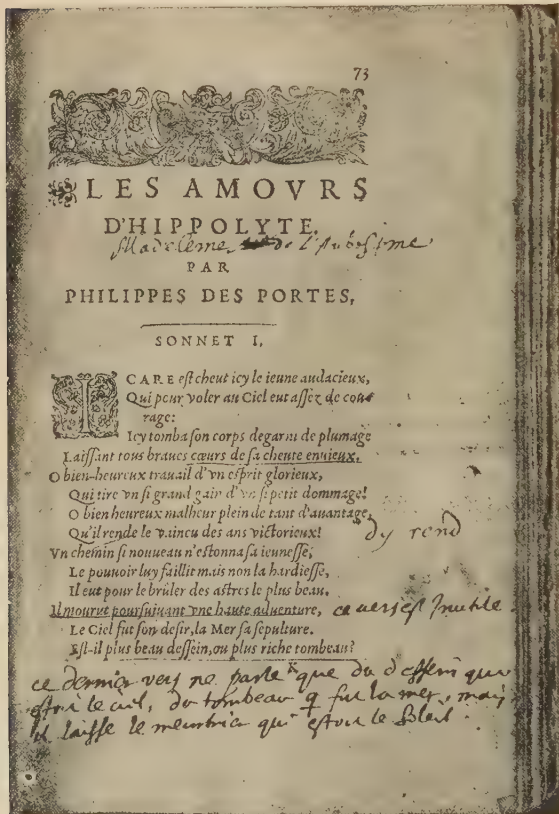 73
LES AMOVRS
D'HIPPOLYTE.
Madeleine de l'Aubespine
PAR
PHILIPPES DES PORTES,
SONNET I,
ICARE est cheut icy le ieune audacieux,
Qui pour voler au Ciel eut assez de cou-
rage:
Icy tomba son corps degarni de plumage
Laissant tous braues cœurs de sa cheute enuieux.
O bien-heureux trauail d'vn esprit glorieux,
Qui tire vn si grand gain d'vn si petit dommage!
O bien heureux malheur plein de tant d'auantage,
Qu'il rende le vaincu des ans victorieux!
dy rend
Vn chemin si nouueau n'estonna sa ieunesse,
Le pouuoir luy faillit mais non la hardiesse,
Il eut pour le brûler des astres le plus beau.
Il mourut poursuiuant vne haute aduenture,
ce vers est Inutile.
Le Ciel fut son desir, la Mer sa sepulture.
Est-il plus beau dessein, ou plus riche tombeau?
ce dernier vers ne parle que du dessein qui
estoit le ciel, du tombeau q fut la mer, mais
il laisse le meurtrier qui estoit le soleil.